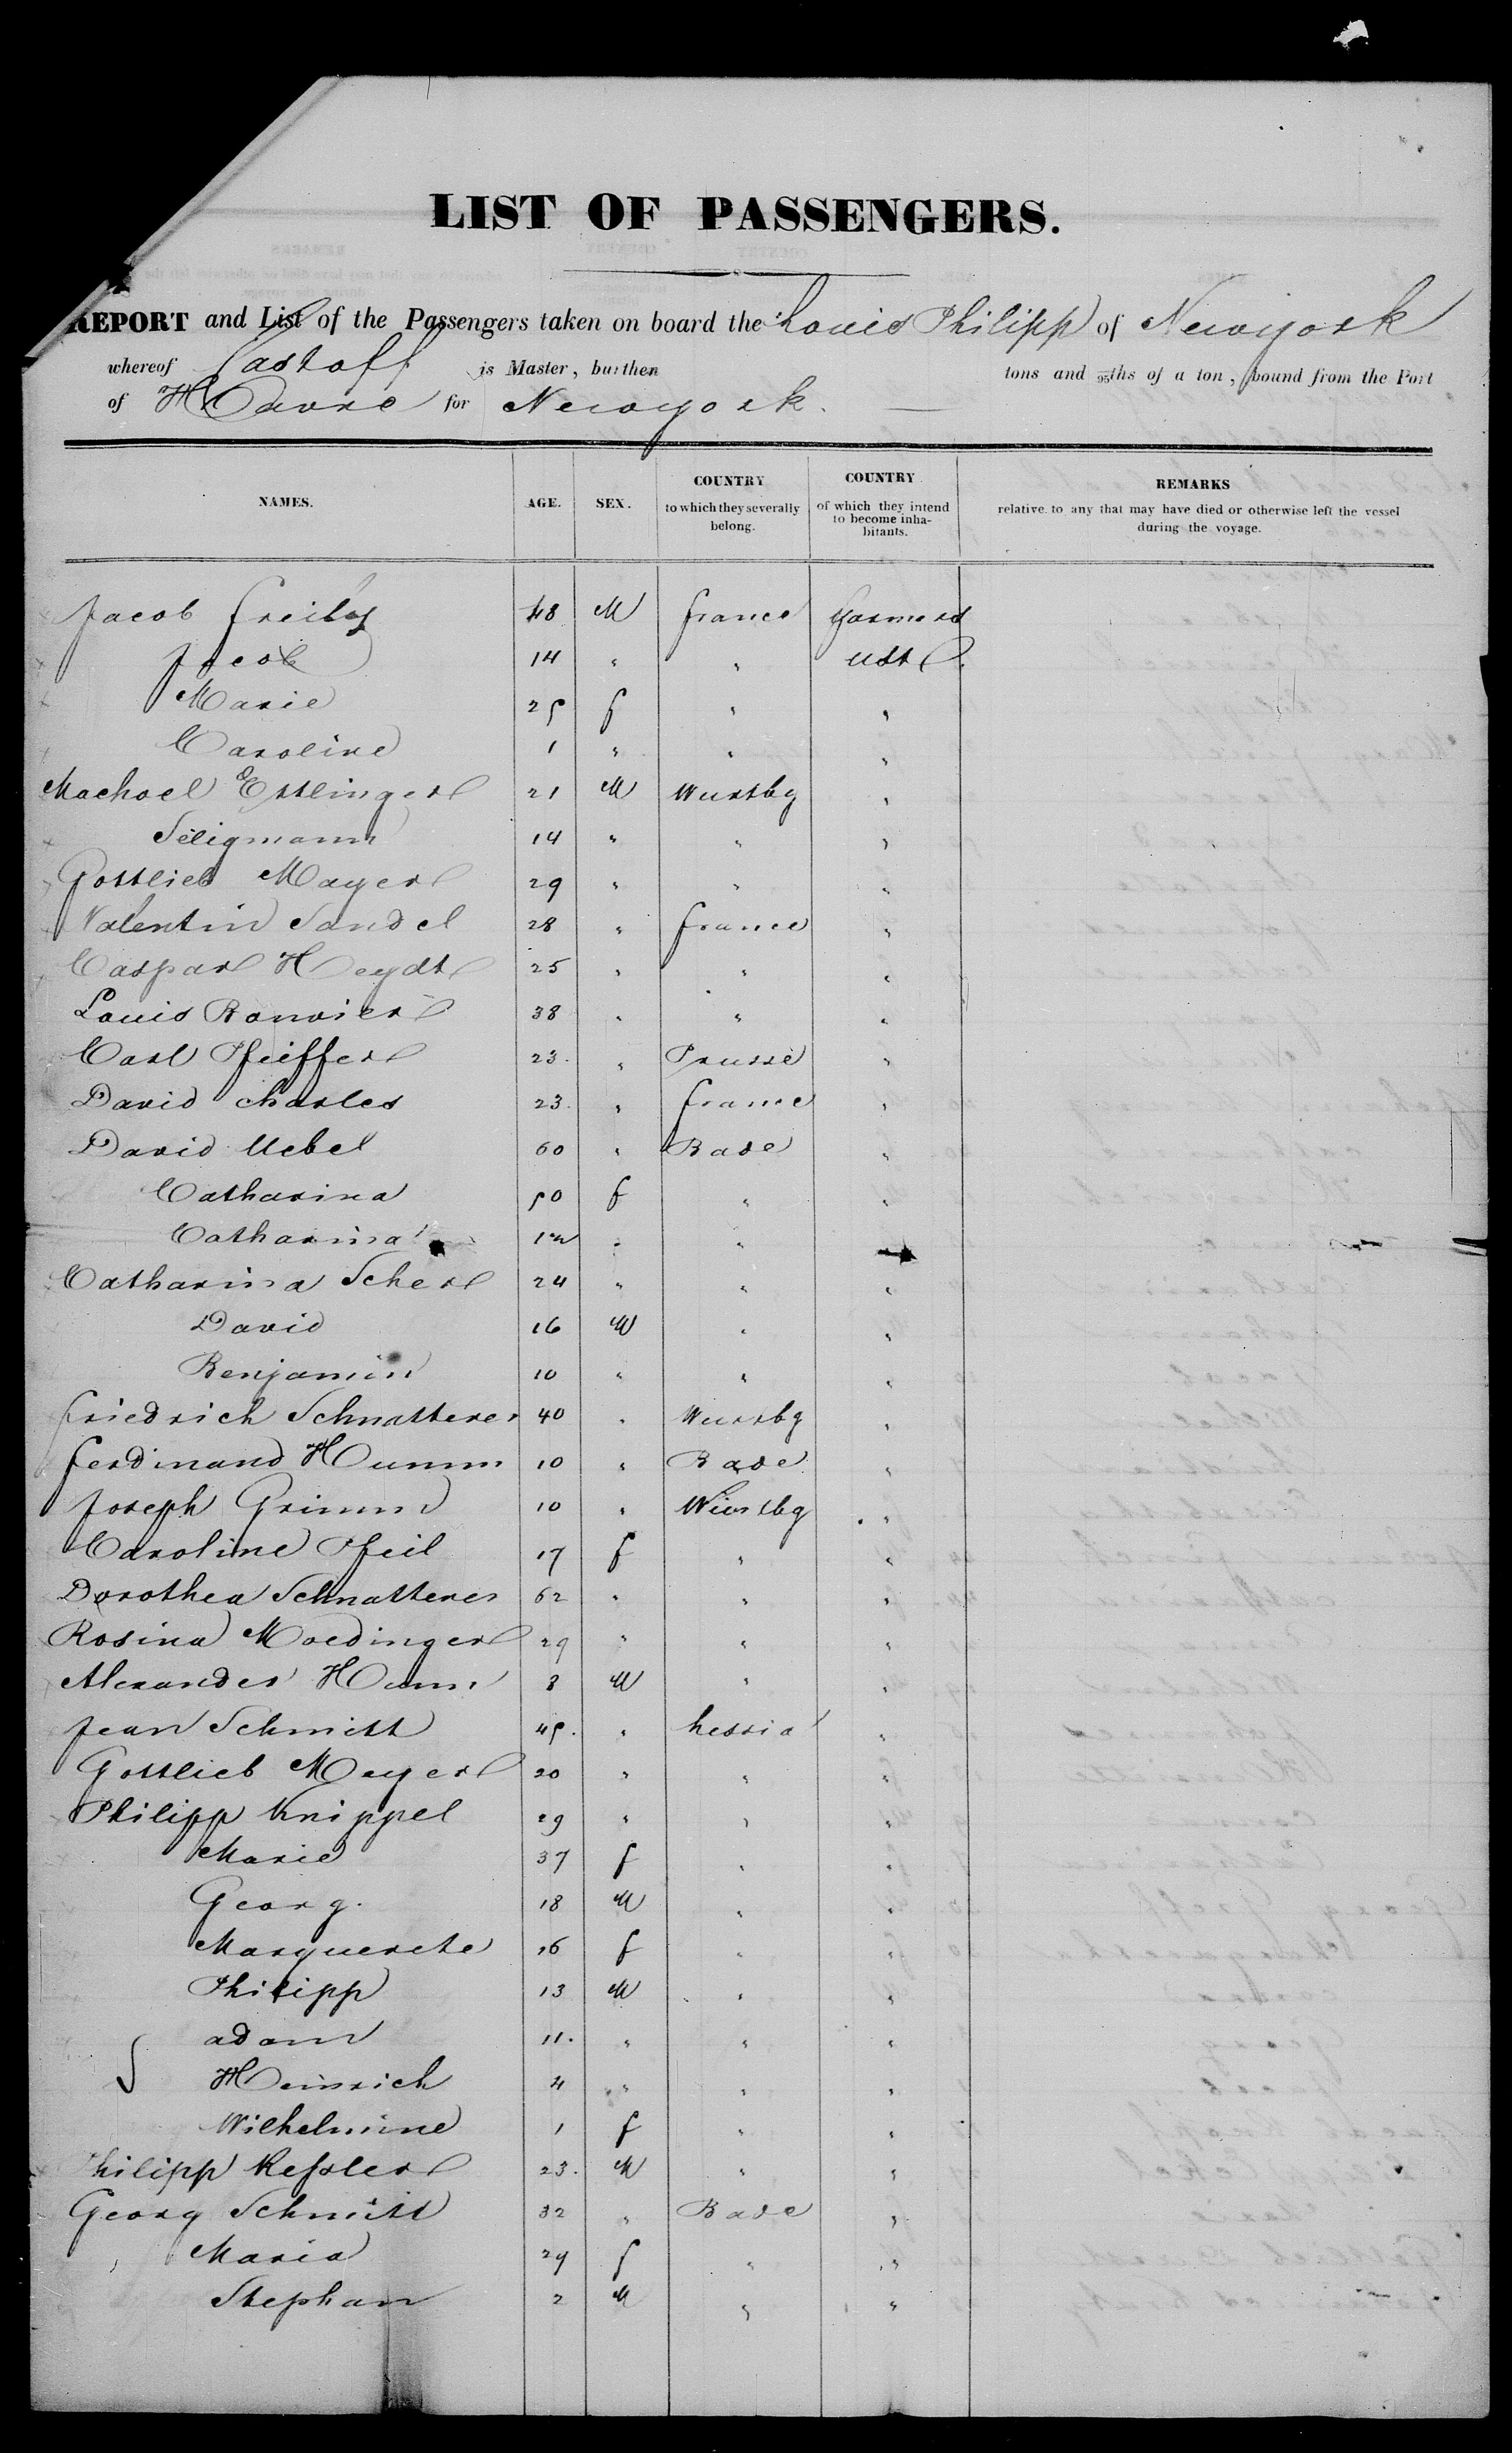 LIST OF PASSENGERS.
REPORT and List of the Passengers taken on board the Louis Philipp of Newyork
whereof Castoff is Master, burthen tons and 95ths of a ton, bound from the Port
of Havre for Newyork.
NAMES. AGE. SEX. COUNTRY to which they severally belong. COUNTRY of which they intend to become inhabitants. REMARKS relative to any that may have died or otherwise left the vessel during the voyage.
Jacob 48 M france farmers
Jacob 14 " " USt
Marie 25 f " "
Caroline 1 " " "
Machoel Ettlinger 21 M Wurtbg "
Seligmann 14 " " "
Gottlieb Mayer 29 " " "
Valentin Sandel 28 " france "
Caspar Heydt 25 " " "
Louis Ronvier 38 " " "
Carl Pfeiffer 23. " Prusse "
David Charles 23. " france "
David Uebel 60 " Bade "
Catharina 50 f " "
Catharina " "
Catharina Scherr 24 " " "
David 16 M " "
Benjamin 10 " " "
friedrich Schnatterer 40 " Wurtbg "
ferdinand Humm 10 " Bade "
Joseph Grimm 10 " Wurtbg "
Caroline Pfeil 17 f " "
Dorothea Schnatterer 62 " " "
Rosina Moedinger 29 " " "
Alexander Humm 8 M " "
Jean Schmitt 45. " hessia "
Gottlieb Meyer 20 " " "
Philipp Knippel 29 " " "
Marie 37 f " "
Georg. 18 M " "
Marguerete 16 f " "
Philipp 13 M " "
adam 11. " " "
Heinrich 4 " " "
Wilhelmine 1 f " "
Philipp Kessler 23. M " "
Georg Schmitt 32 " Bade "
Maria 29 f " "
Stephan 2 M " "